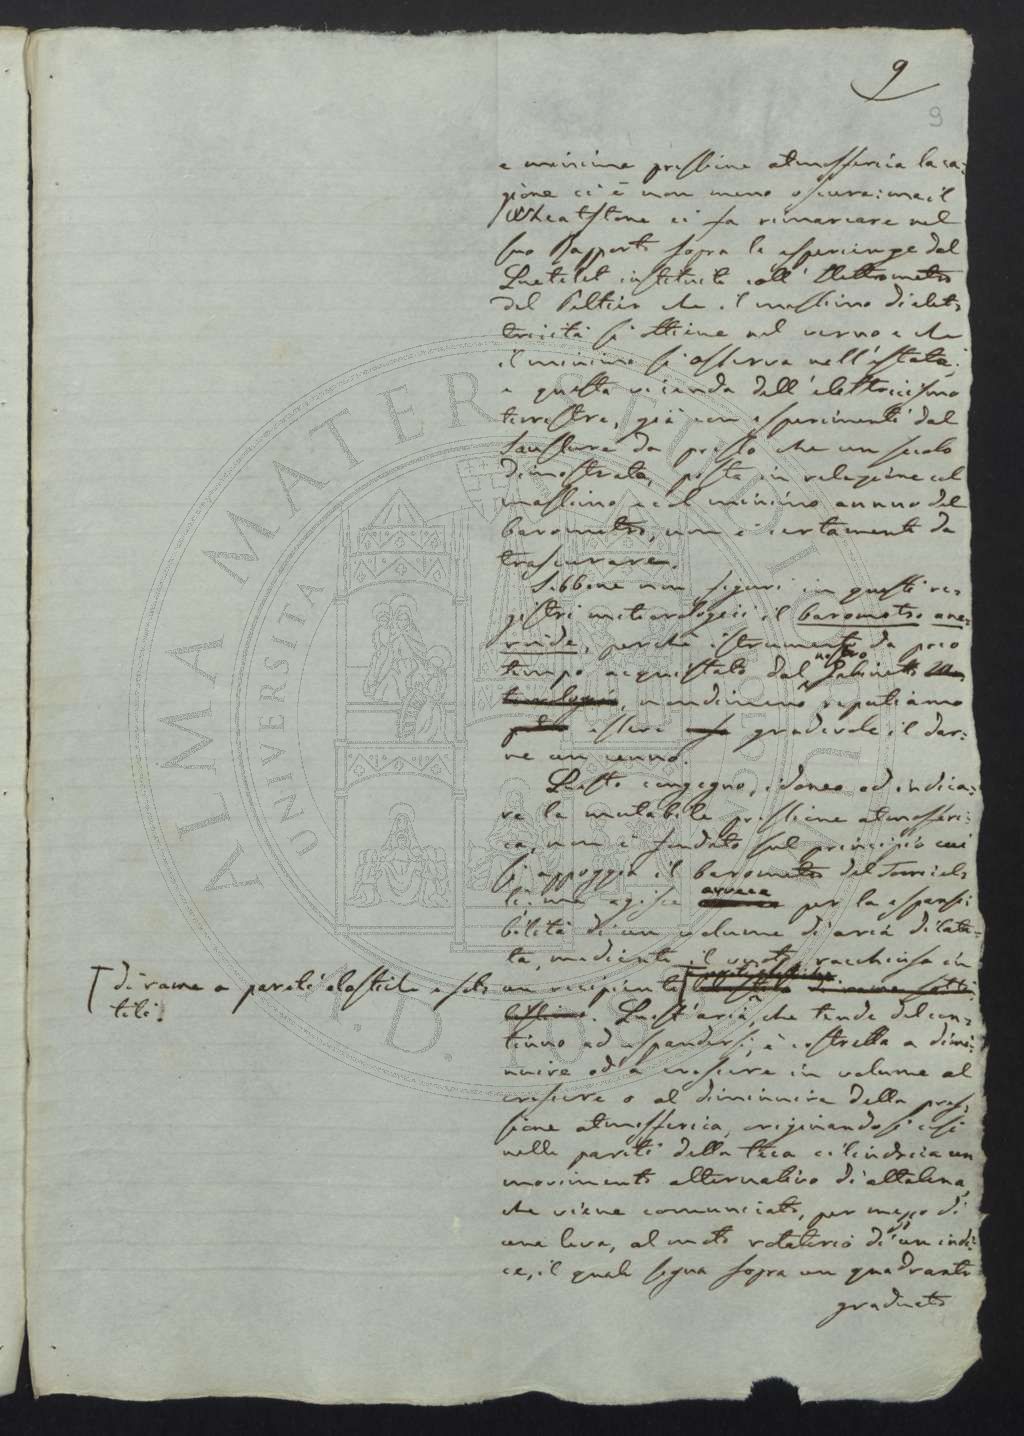 9
9
e minima pressione atmosferica la ca-
gione ci è non meno oscura: ma il
Wheatstone ci fa rimarcare nel
suo Rapporto sopra le esperienze del
Quetelet instituite coll'Elettrometro
del Peltier che il massimo di elet-
tricità si ottiene nel verno e che
il minimo si osserva nell'estate;
e questa vicenda dell'elettricismo
terrestre, già con esperimenti dal
Saussure da presso che un secolo
dimostrata, posta in relazione col
massimo e col minimo annuo del
barometro, non è certamente da
trascurare.
Sebbene non figuri in questi re-
gistri meteorologici il barometro ane-
roide, perchè istrumento da poco
tempo acquistato dal nostro Gabinetto
, nondimeno reputiamo
essere gradevole il dar-
ne un cenno.
Questo congegno, idoneo ad indica-
re la mutabile pressione atmosferi-
ca, non è fondato sul principio cui
si appoggia il barometro del Torricel-
li; ma agisce invece per la espansi-
bilità di un volume di aria dilata-
ta, mediante il vuoto, racchiusa in
un recipiente
di rame a pareti elastiche e sot-
tili.
. Quest'aria, che tende del con-
tinuo ad espandersi, è costretta a dimi-
nuire od a crescere in volume al
crescere o al diminuire della pres-
sione atmosferica, originandosi così
nelle pareti della teca cilindrica un
movimento alternativo di altalena,
che viene comunicato, per mezzo di
una leva, al moto rotatorio di un indi-
ce, il quale segna sopra un quadrante
graduato
ALMA MATER STUDIORUM
UNIVERSITÀ DI BOLOGNA
A.D. 1088